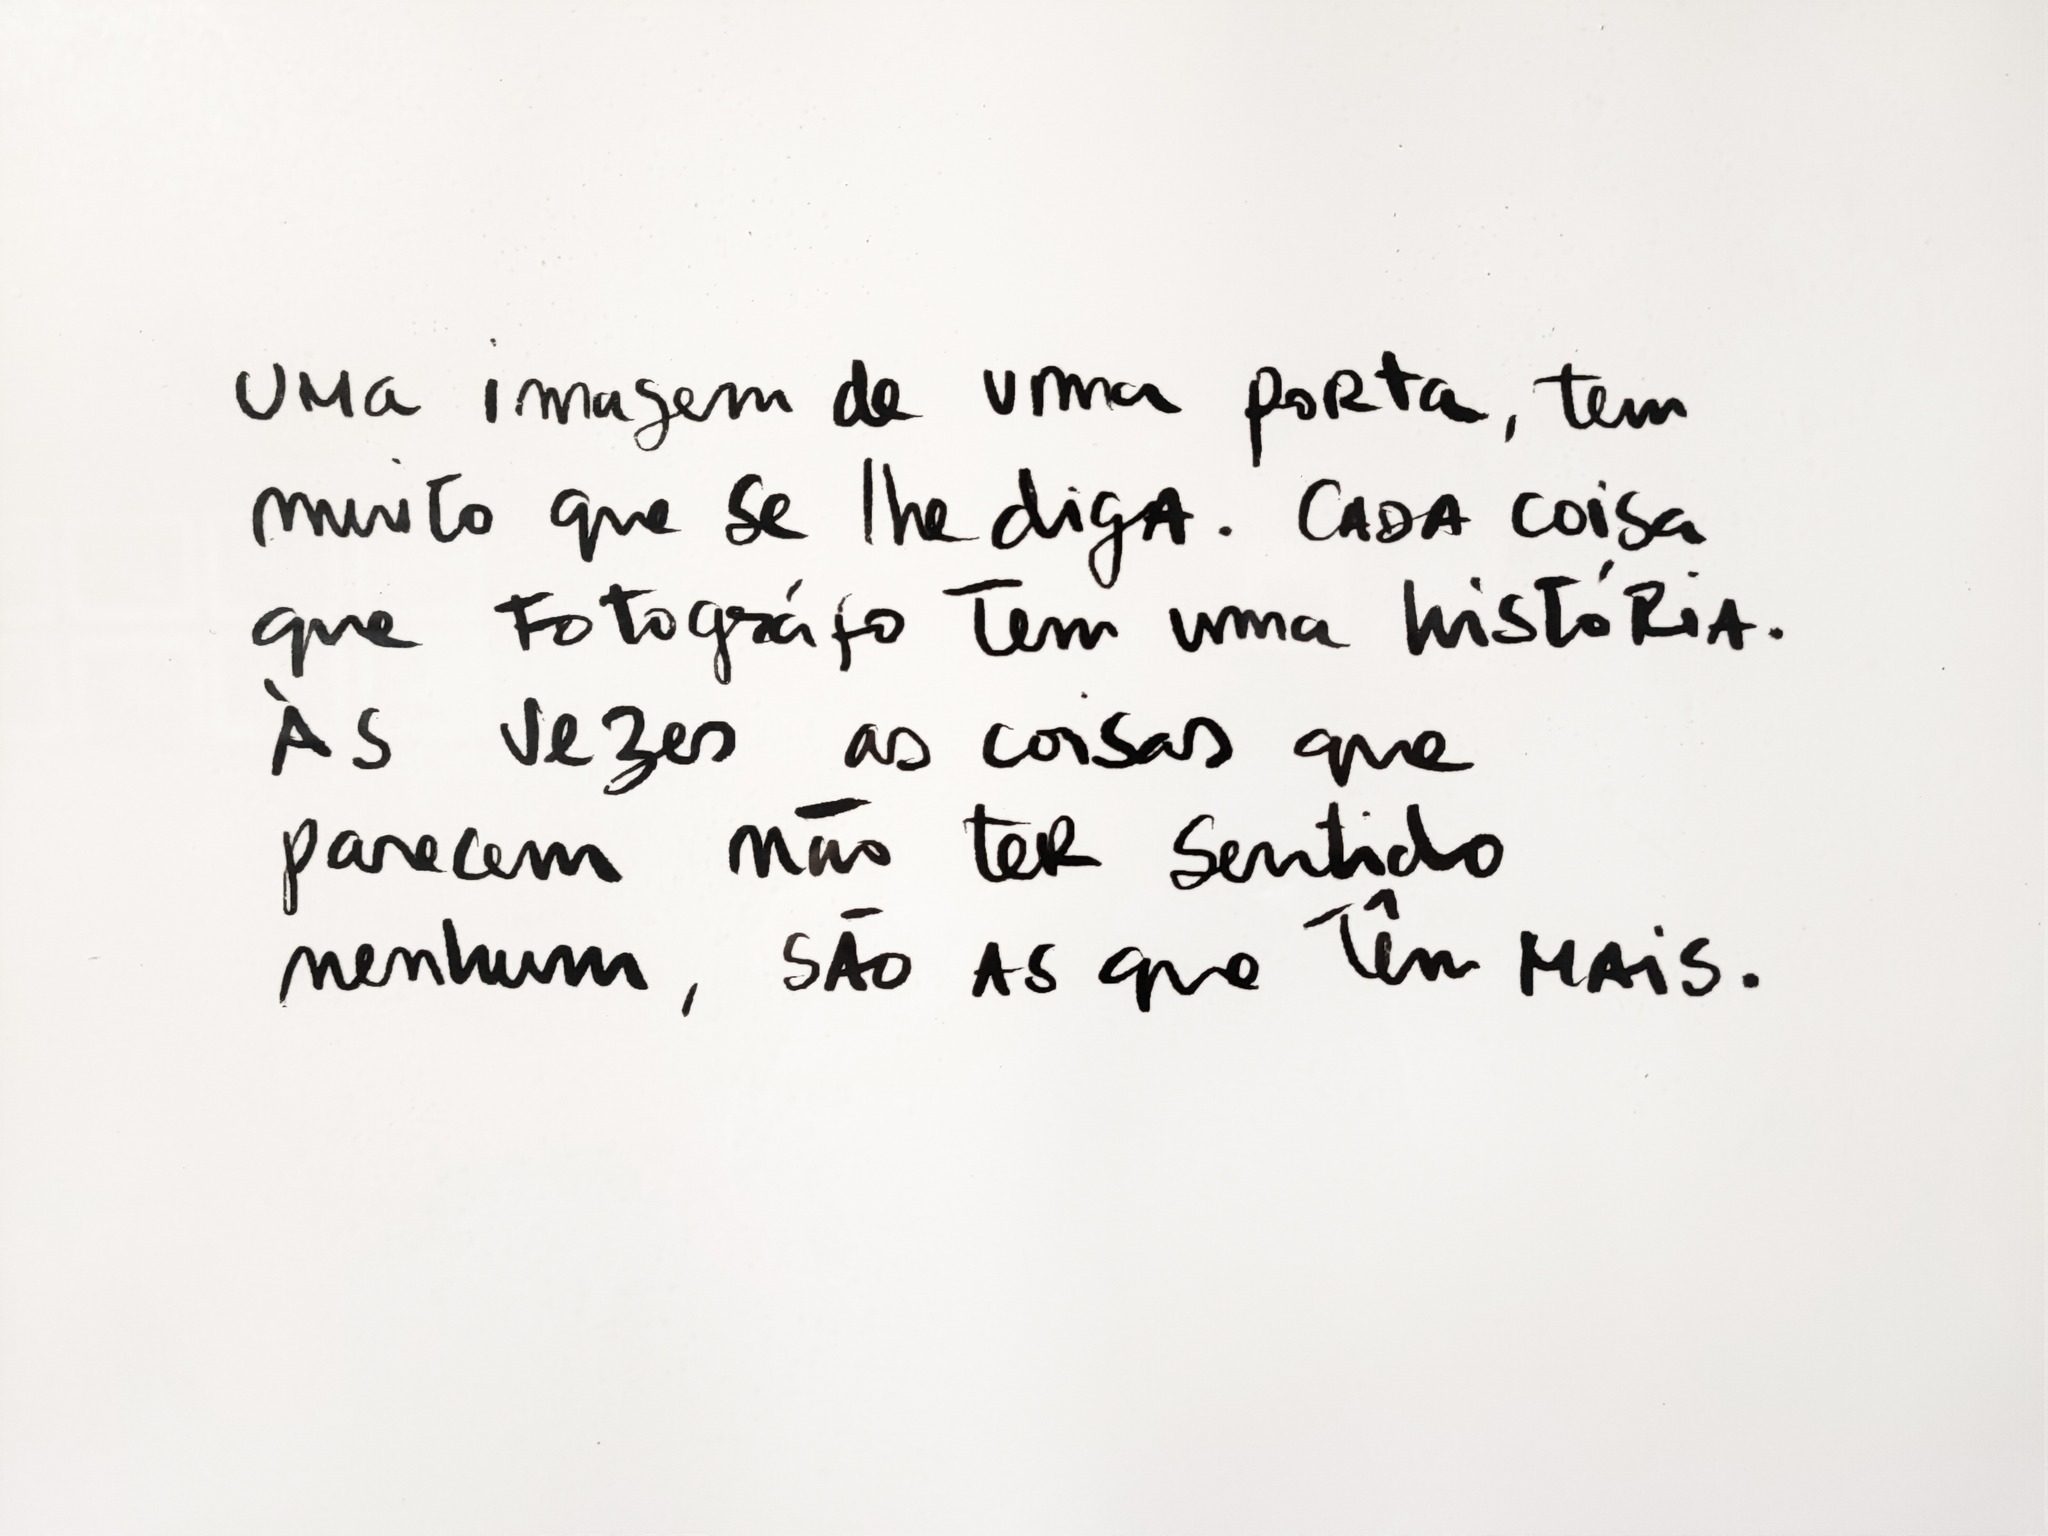 UMa imagem de uma poRta, tem
muito que se lhe digA. CADA coisa
que Fotográfo Tem uma histórRiA.
Às vezes as coisas que
parecem não teR sentido
nenhum, SÃO AS que Têm MAiS.